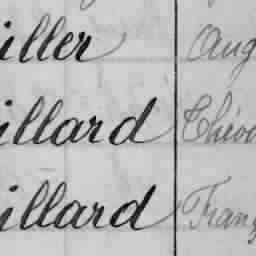 iller Aug
illard Théo
illard Franç